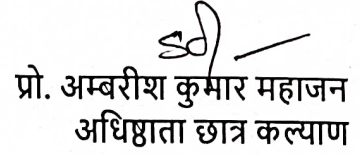 Sd/-
प्रो. अम्बरीश कुमार महाजन
अधिष्ठाता छात्र कल्याण